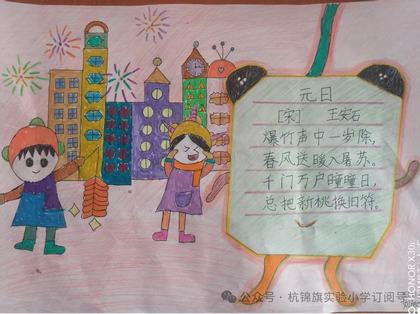 元日
[宋] 王安石
爆竹声中一岁除,
春风送暖入屠苏。
千门万户曈曈日,
总把新桃换旧符。
公众号·杭锦旗实验小学订阅号
HONOR X30i